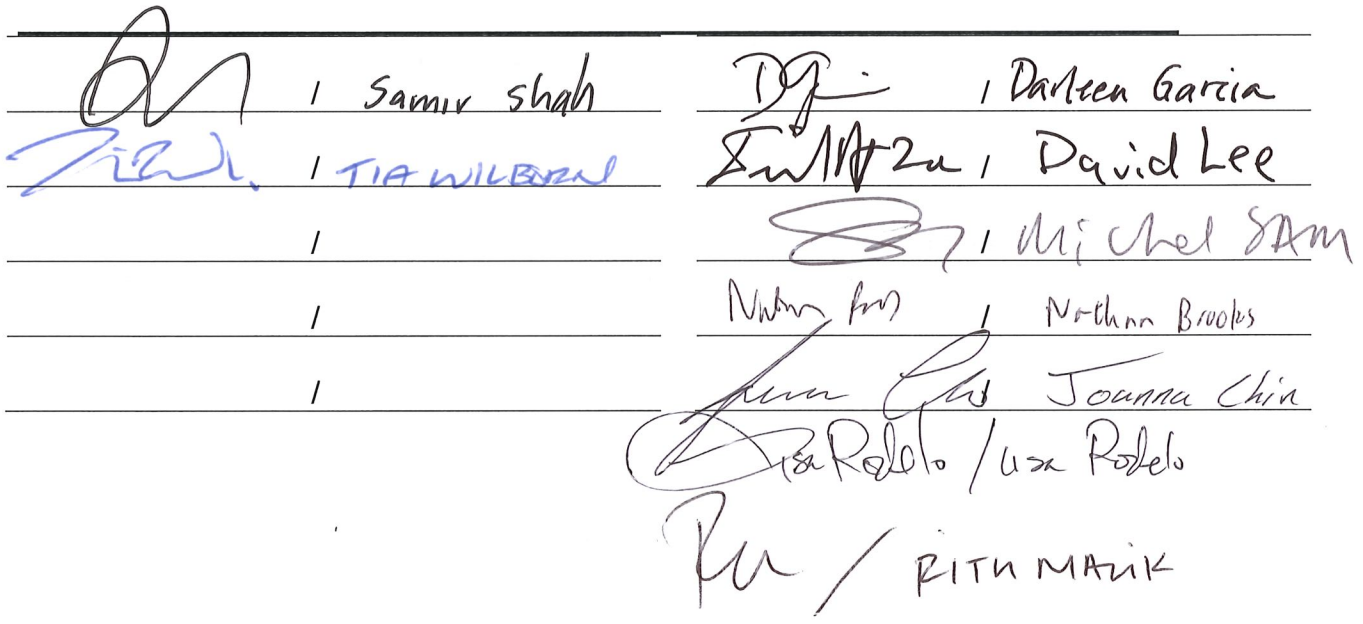 / Samir Shah
/ TIA WILBORN
/
/
/
/ Darleen Garcia
/ David Lee
/ Michel SAM
/ Nathan Brooks
/ Joanna Chin
Lisa Rodelo / Lisa Rodelo
/ RITU MALIK